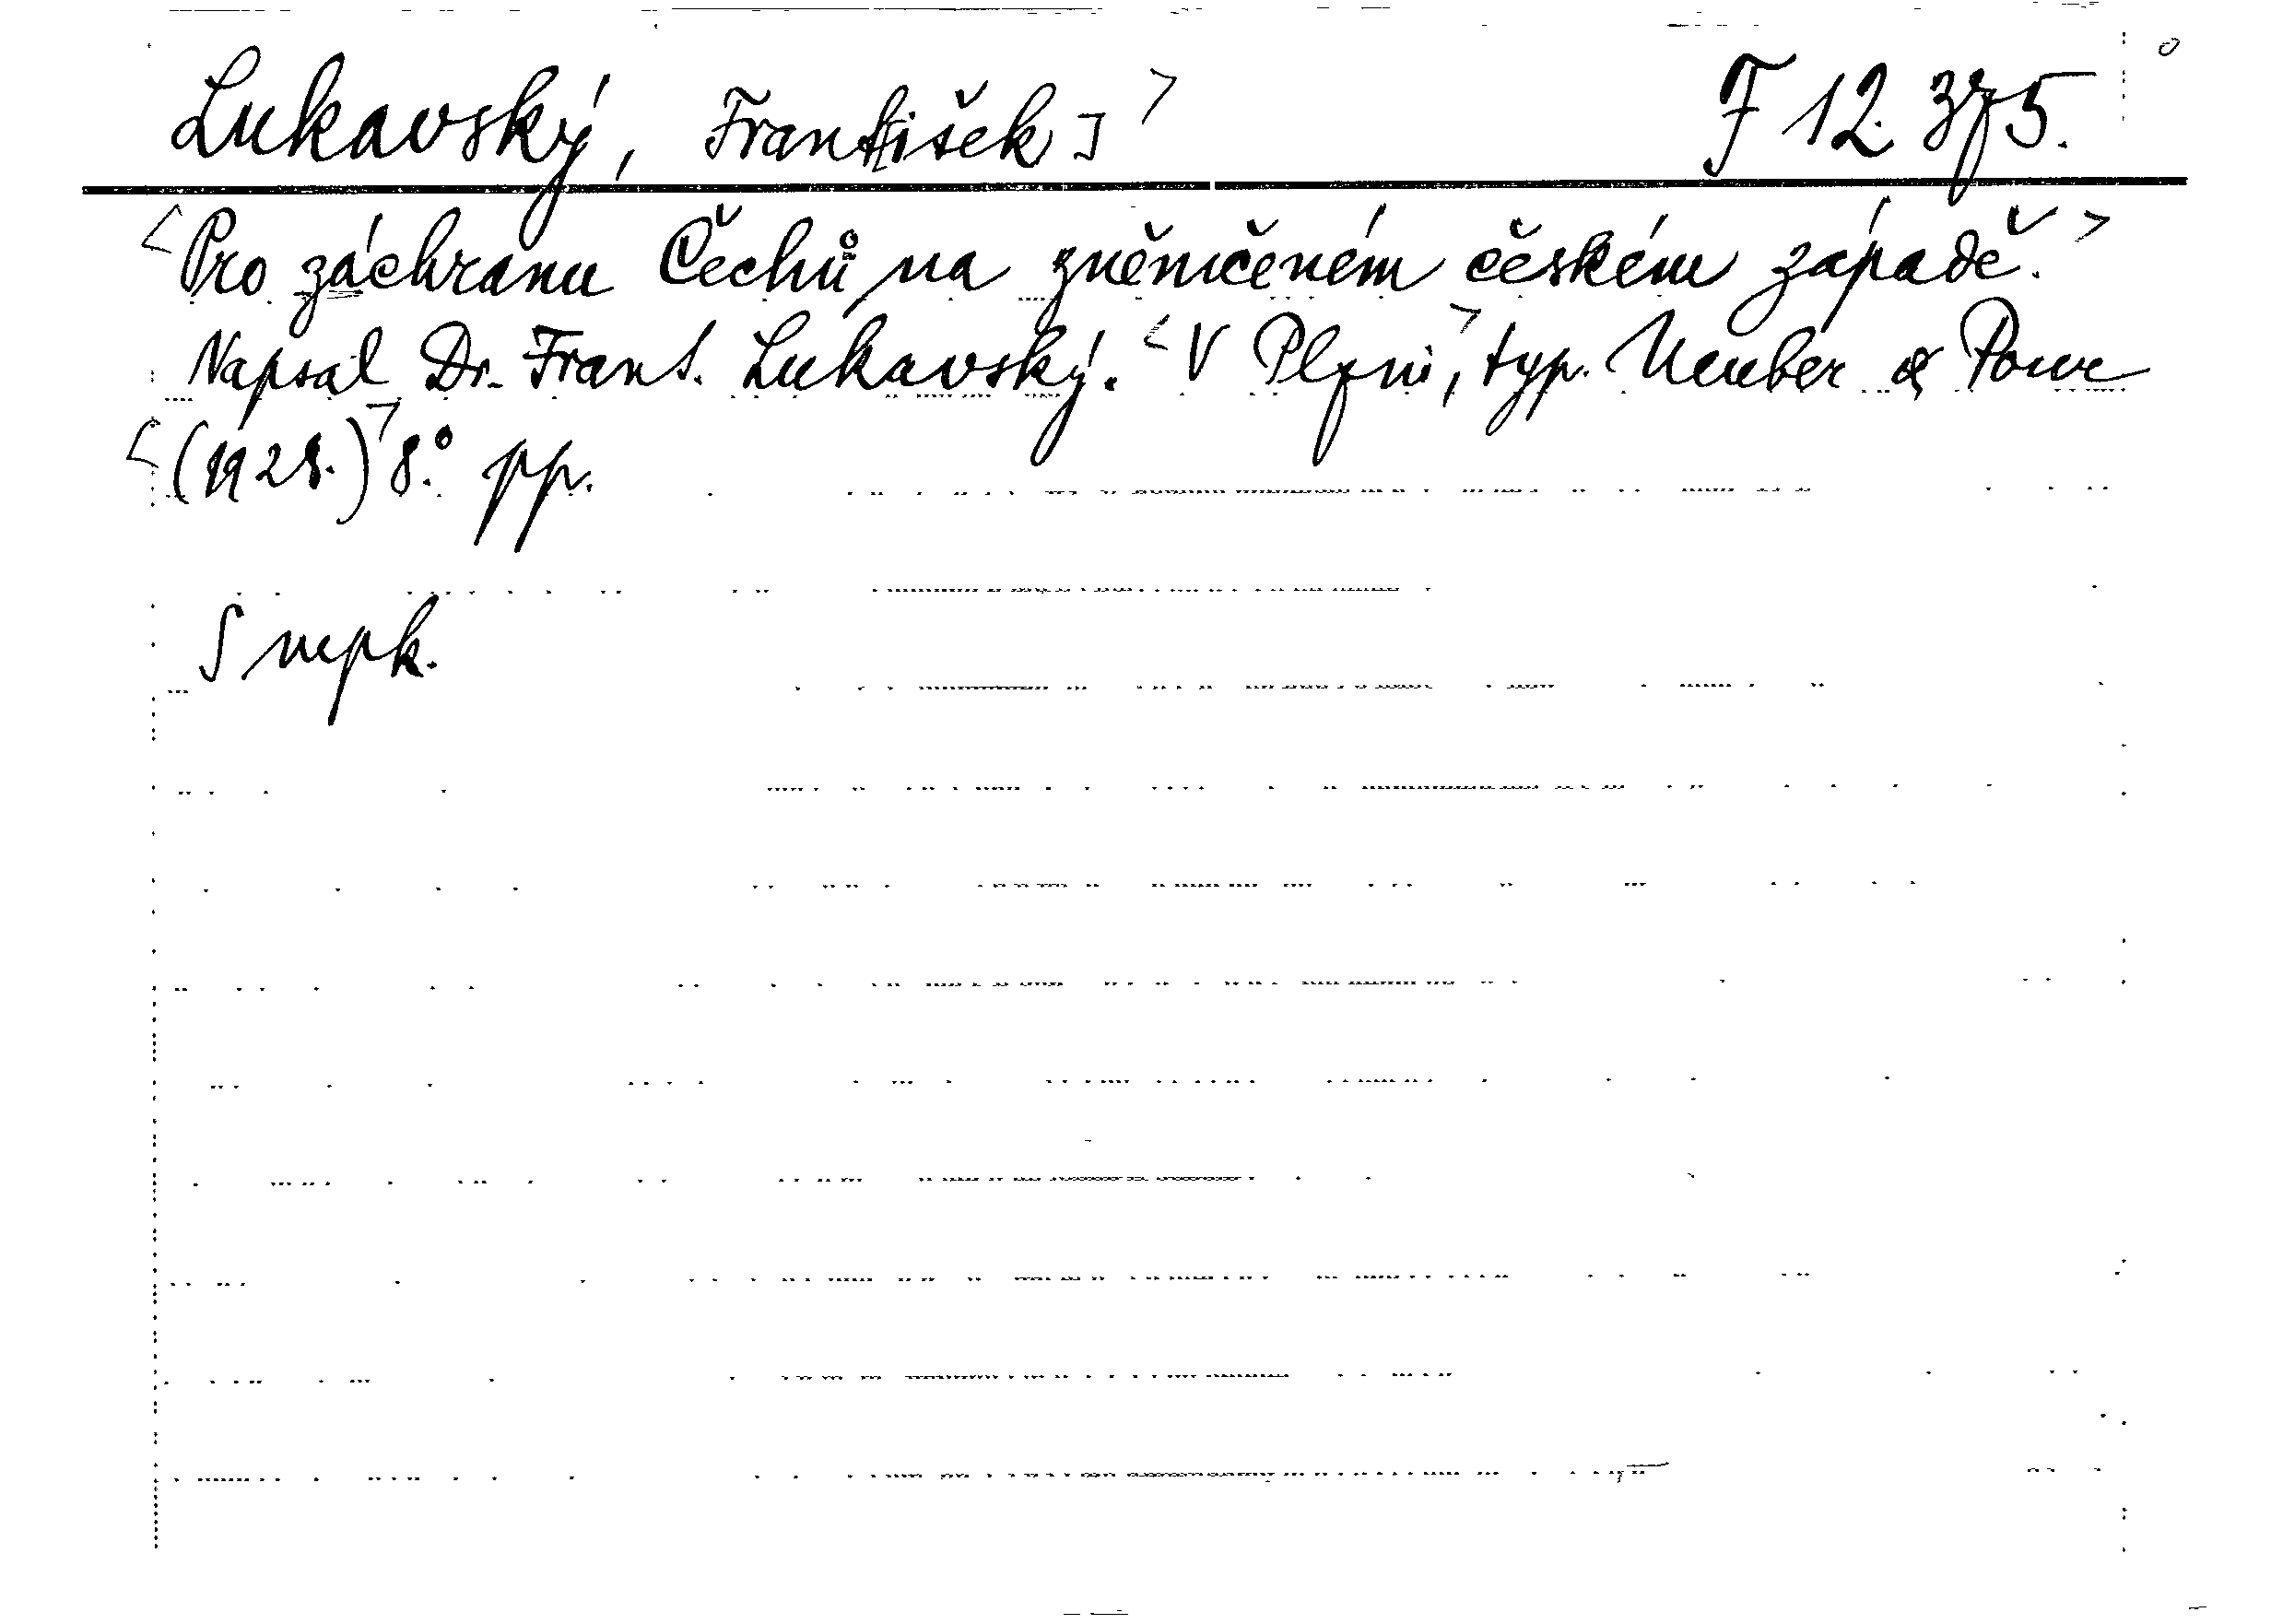 Lukavský, Frant[išek] > F 12. 375.
<Pro záchranu Čechů na zněmčeném českém západě.>
Napsal Dr. Frant. Lukavský. <V Plzni,> typ. Neuber &
<(1928.)> 8.° pp.